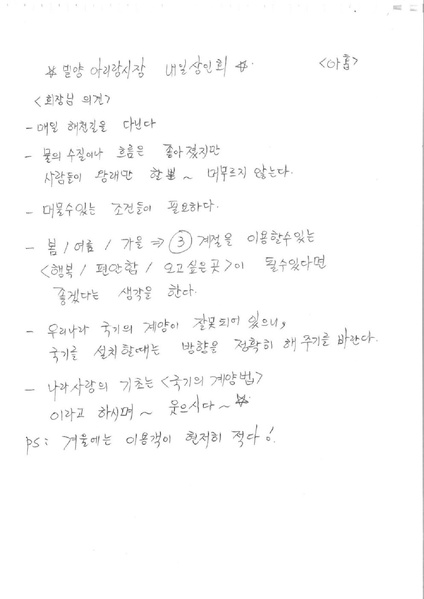 ☆ 밀양 아리랑시장 내일상인회 ☆. <아홉>
<회장님 의견>
- 매일 해천길을 다닌다
- 물의 수질이나 흐름은 좋아졌지만
사람들이 왕래만 할뿐 ~ 머무르지 않는다.
- 머물수있는 조건들이 필요하다.
- 봄 / 여름 / 가을 ⇒ ③ 계절을 이용할수있는
<행복 / 편안함 / 오고싶은곳>이 될수있다면
좋겠다는 생각을 한다.
- 우리나라 국기의 계양이 잘못되어 있으니,
국기를 설치할때는 방향을 정확히 해 주기를 바란다.
- 나라사랑의 기초는 <국기의 계양법>
이라고 하시며 ~ 웃으시다 ~ ☆
PS: 겨울에는 이용객이 현저히 적다!